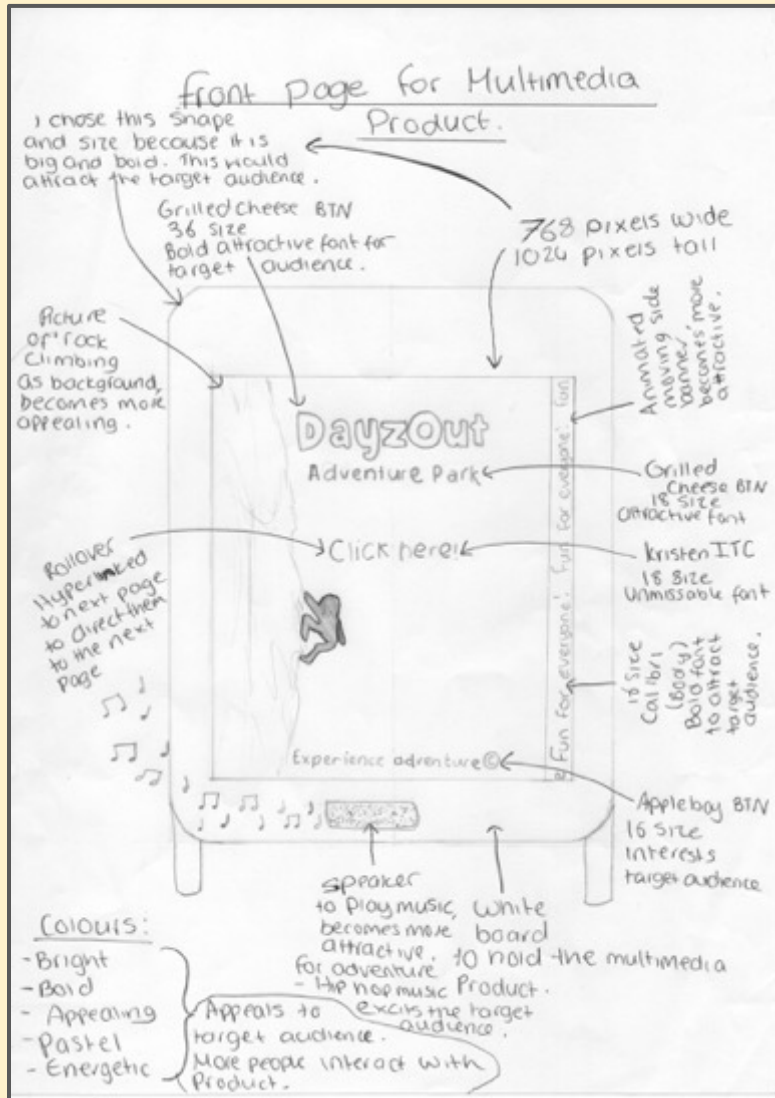 front page for Multimedia
Product.
I chose this shape
and size because it is
big and bold. This would
attract the target audience.
768 pixels wide
1024 pixels tall
Grilled Cheese BTN
36 size
Bold attractive font for
target audience.
Picture
of rock
climbing
as background,
becomes more
appealing.
Animated
moving side
banner,
becomes more
attractive.
DayzOut
Adventure Park
Grilled
Cheese BTN
18 size
attractive font
Click here!
Kristen ITC
18 size
unmissable font
Rollover
Hyperlinked
to next page
to direct them
to the next
page
e Fun for everyone! Fun for everyone! Fun
16 size
Calibri
(Body)
Bold font
to attract
target
audience.
Experience adventure©
Appleboy BTN
16 size
interests
target audience
speaker
to play music,
becomes more
attractive.
for adventure
- Hip hop music
excits the target
audience.
White
board
to hold the multimedia
Product.
Colours:
- Bright
- Bold
- Appealing
- Pastel
- Energetic
Appeals to
target audience.
More people interact with
Product.